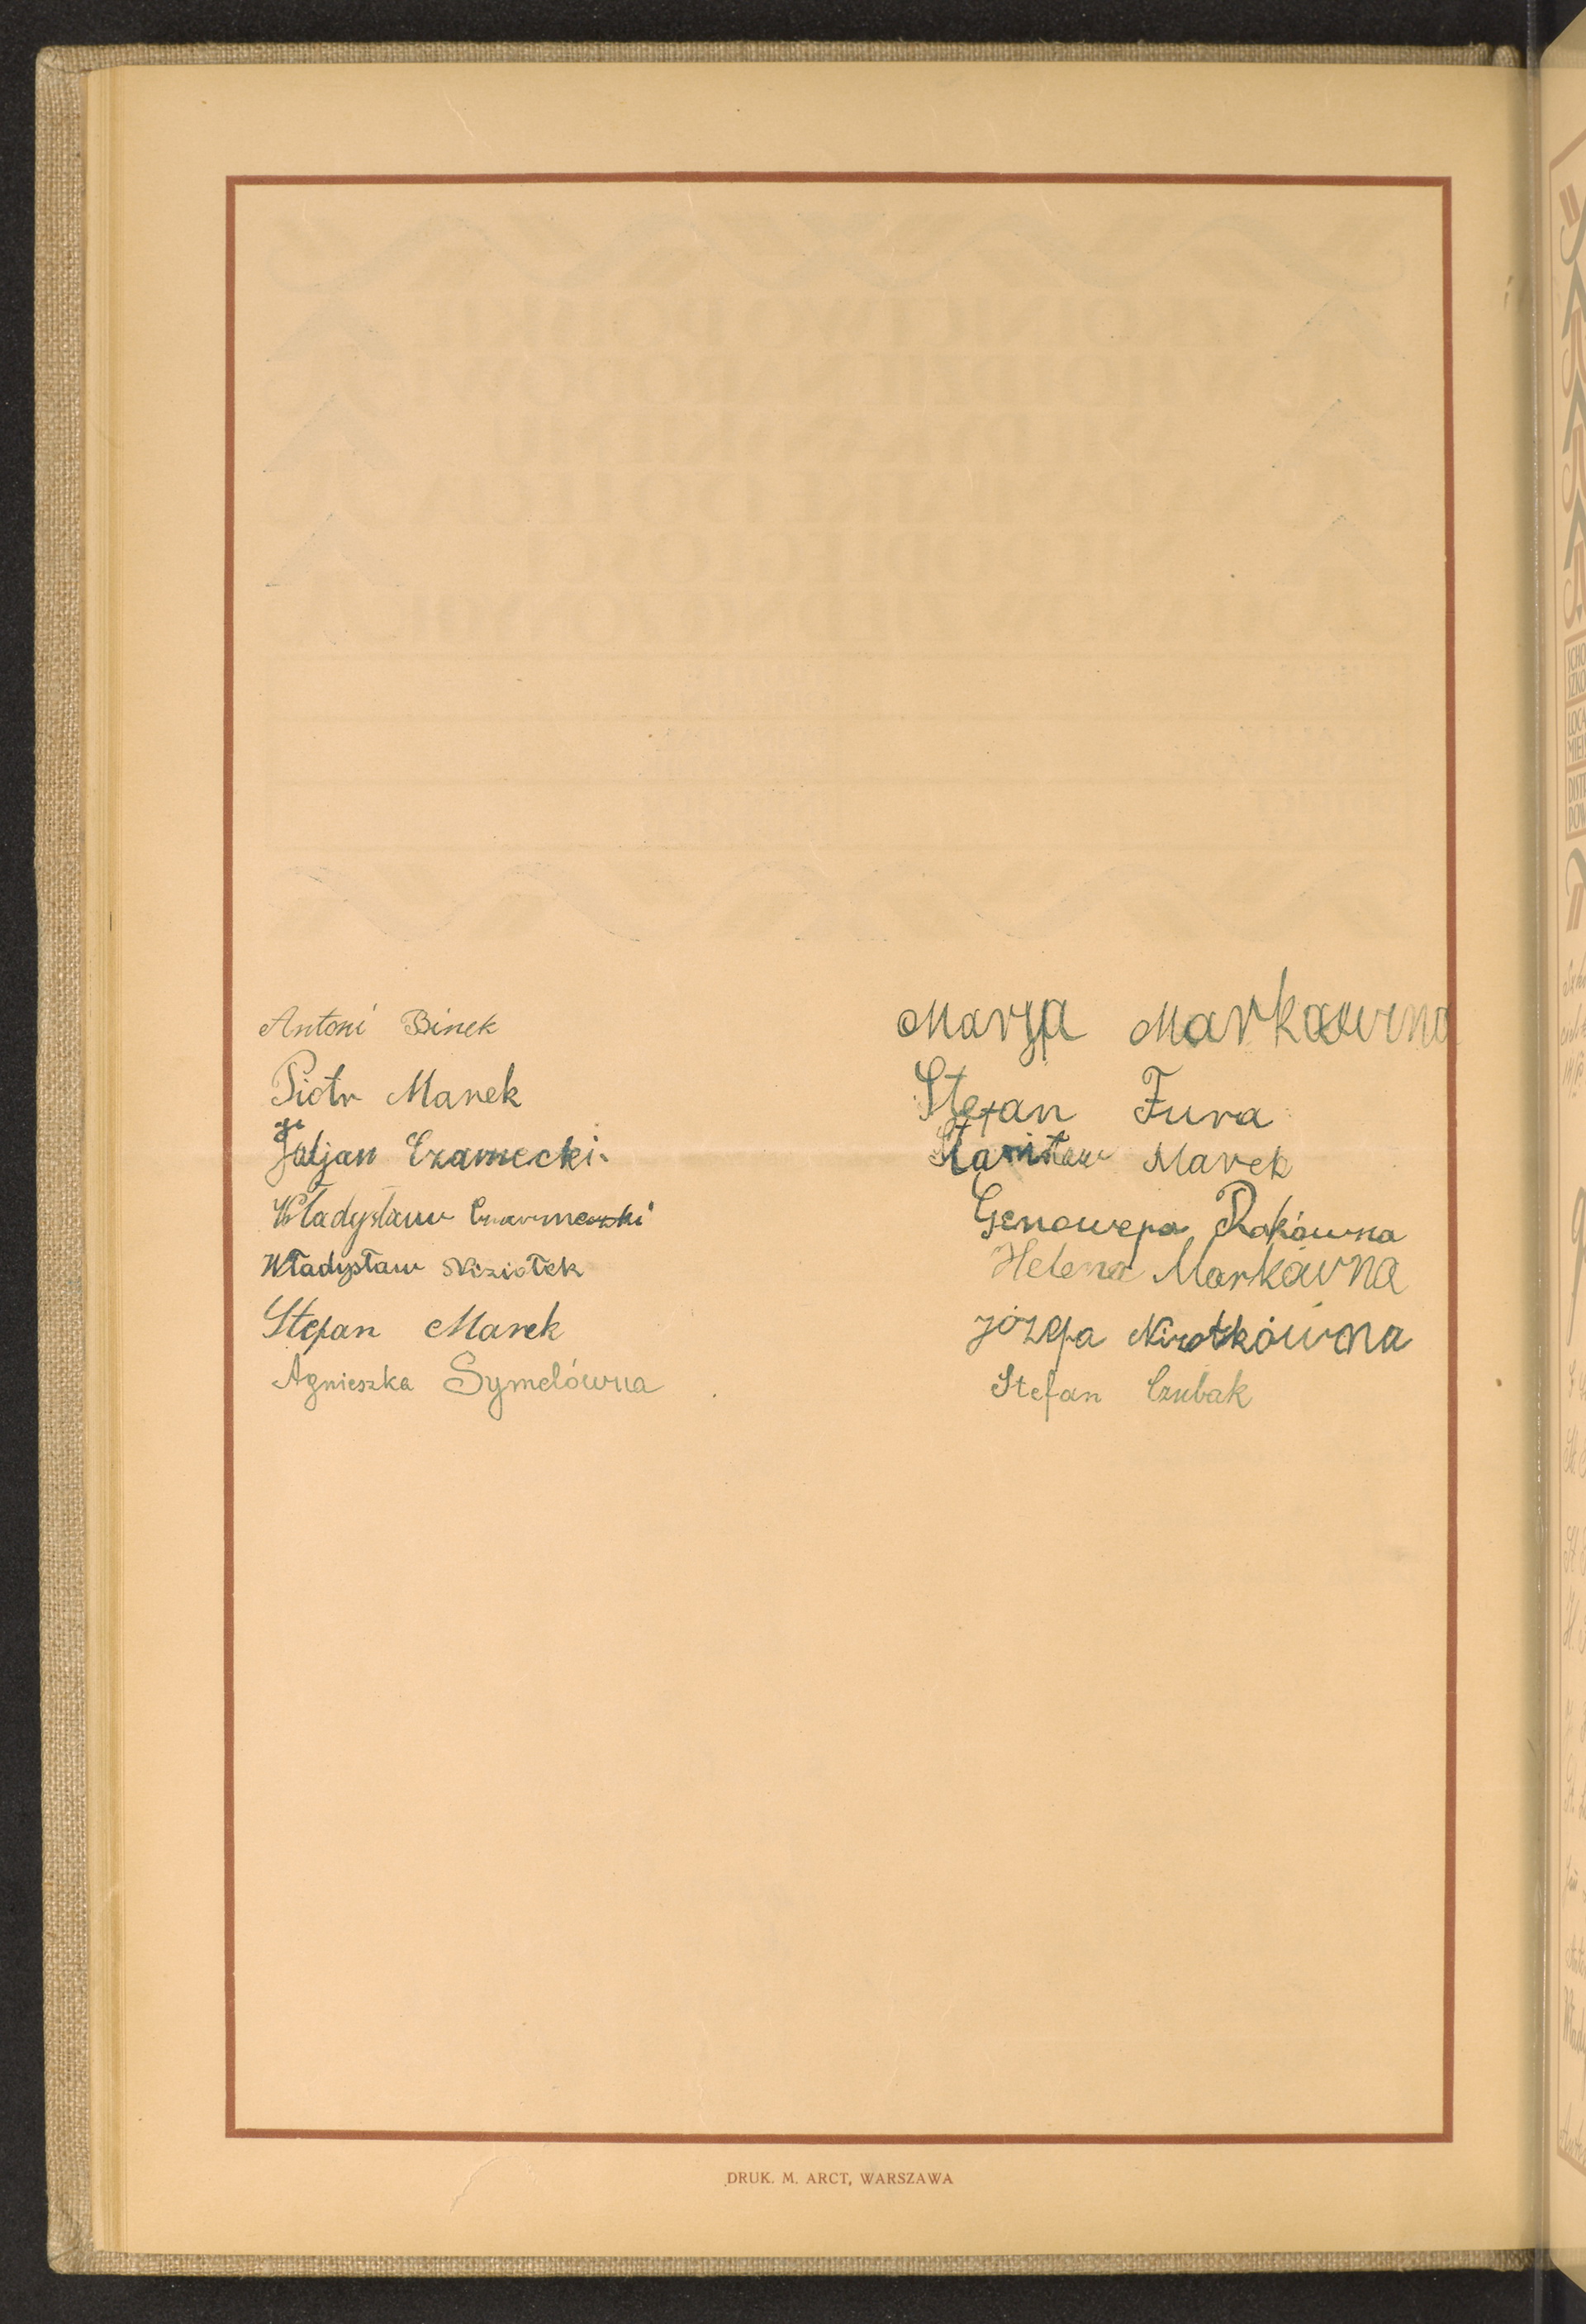 Antoni Binek
Piotr Marek
Juljan Czarnecki
Władysław Czarnecki
Władysław Niziołek
Stefan Marek
Agnieszka Symelówna
Marja Markówna
Stefan Fura
Stanisław Marek
Genowefa Rakówna
Helena Markówna
Józefa
Stefan Czubak
DRUK. M. ARCT, WARSZAWA